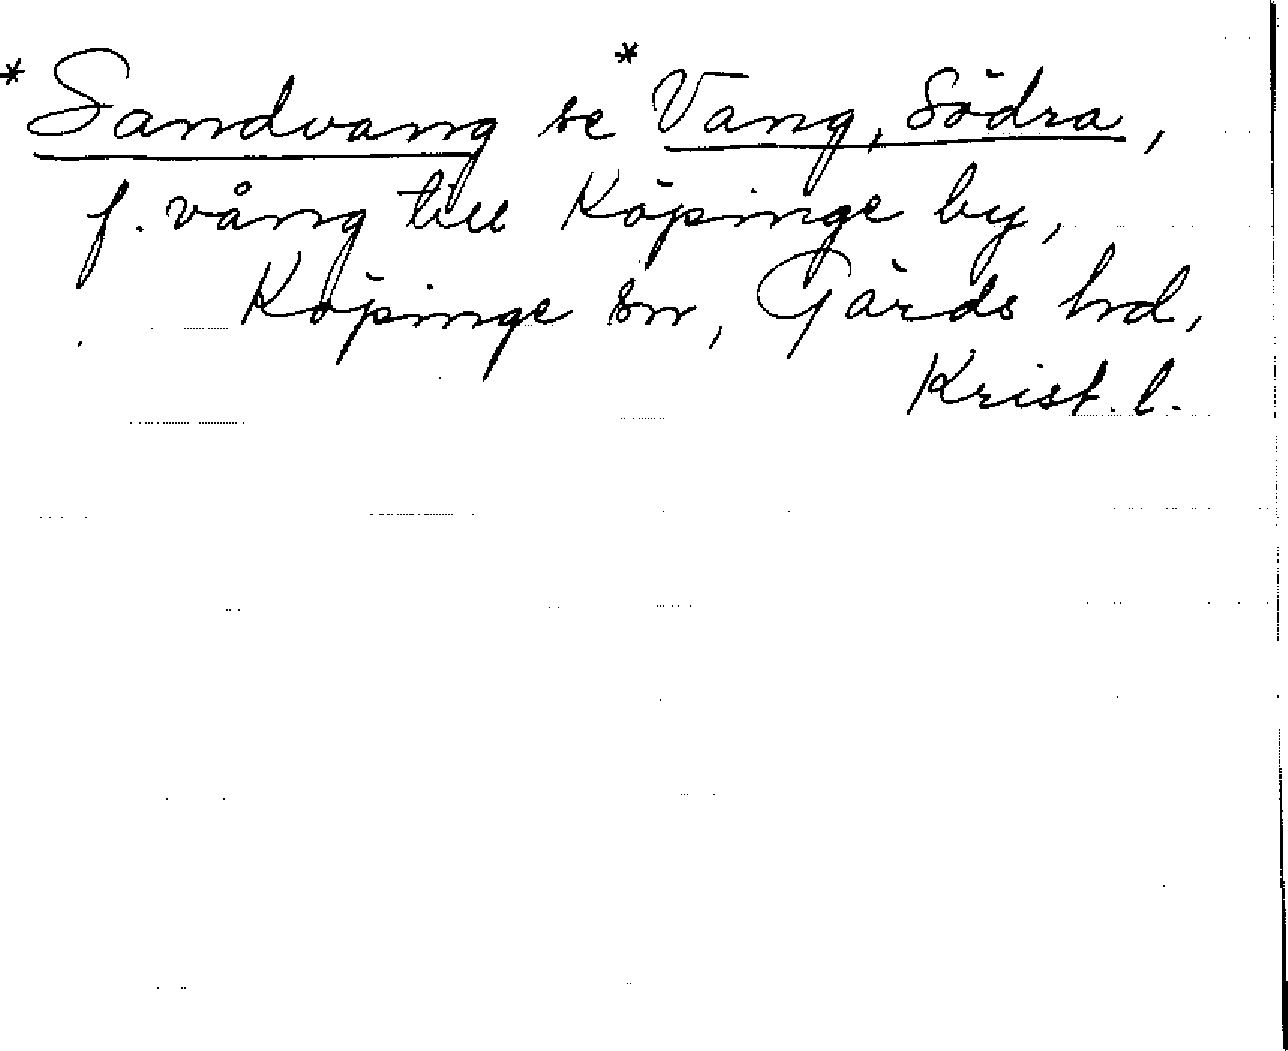 *Sandvang se *Vang, Södra,
f. vång till Köpinge by,
Köpinge sn, Gärds hd,
Krist. l.